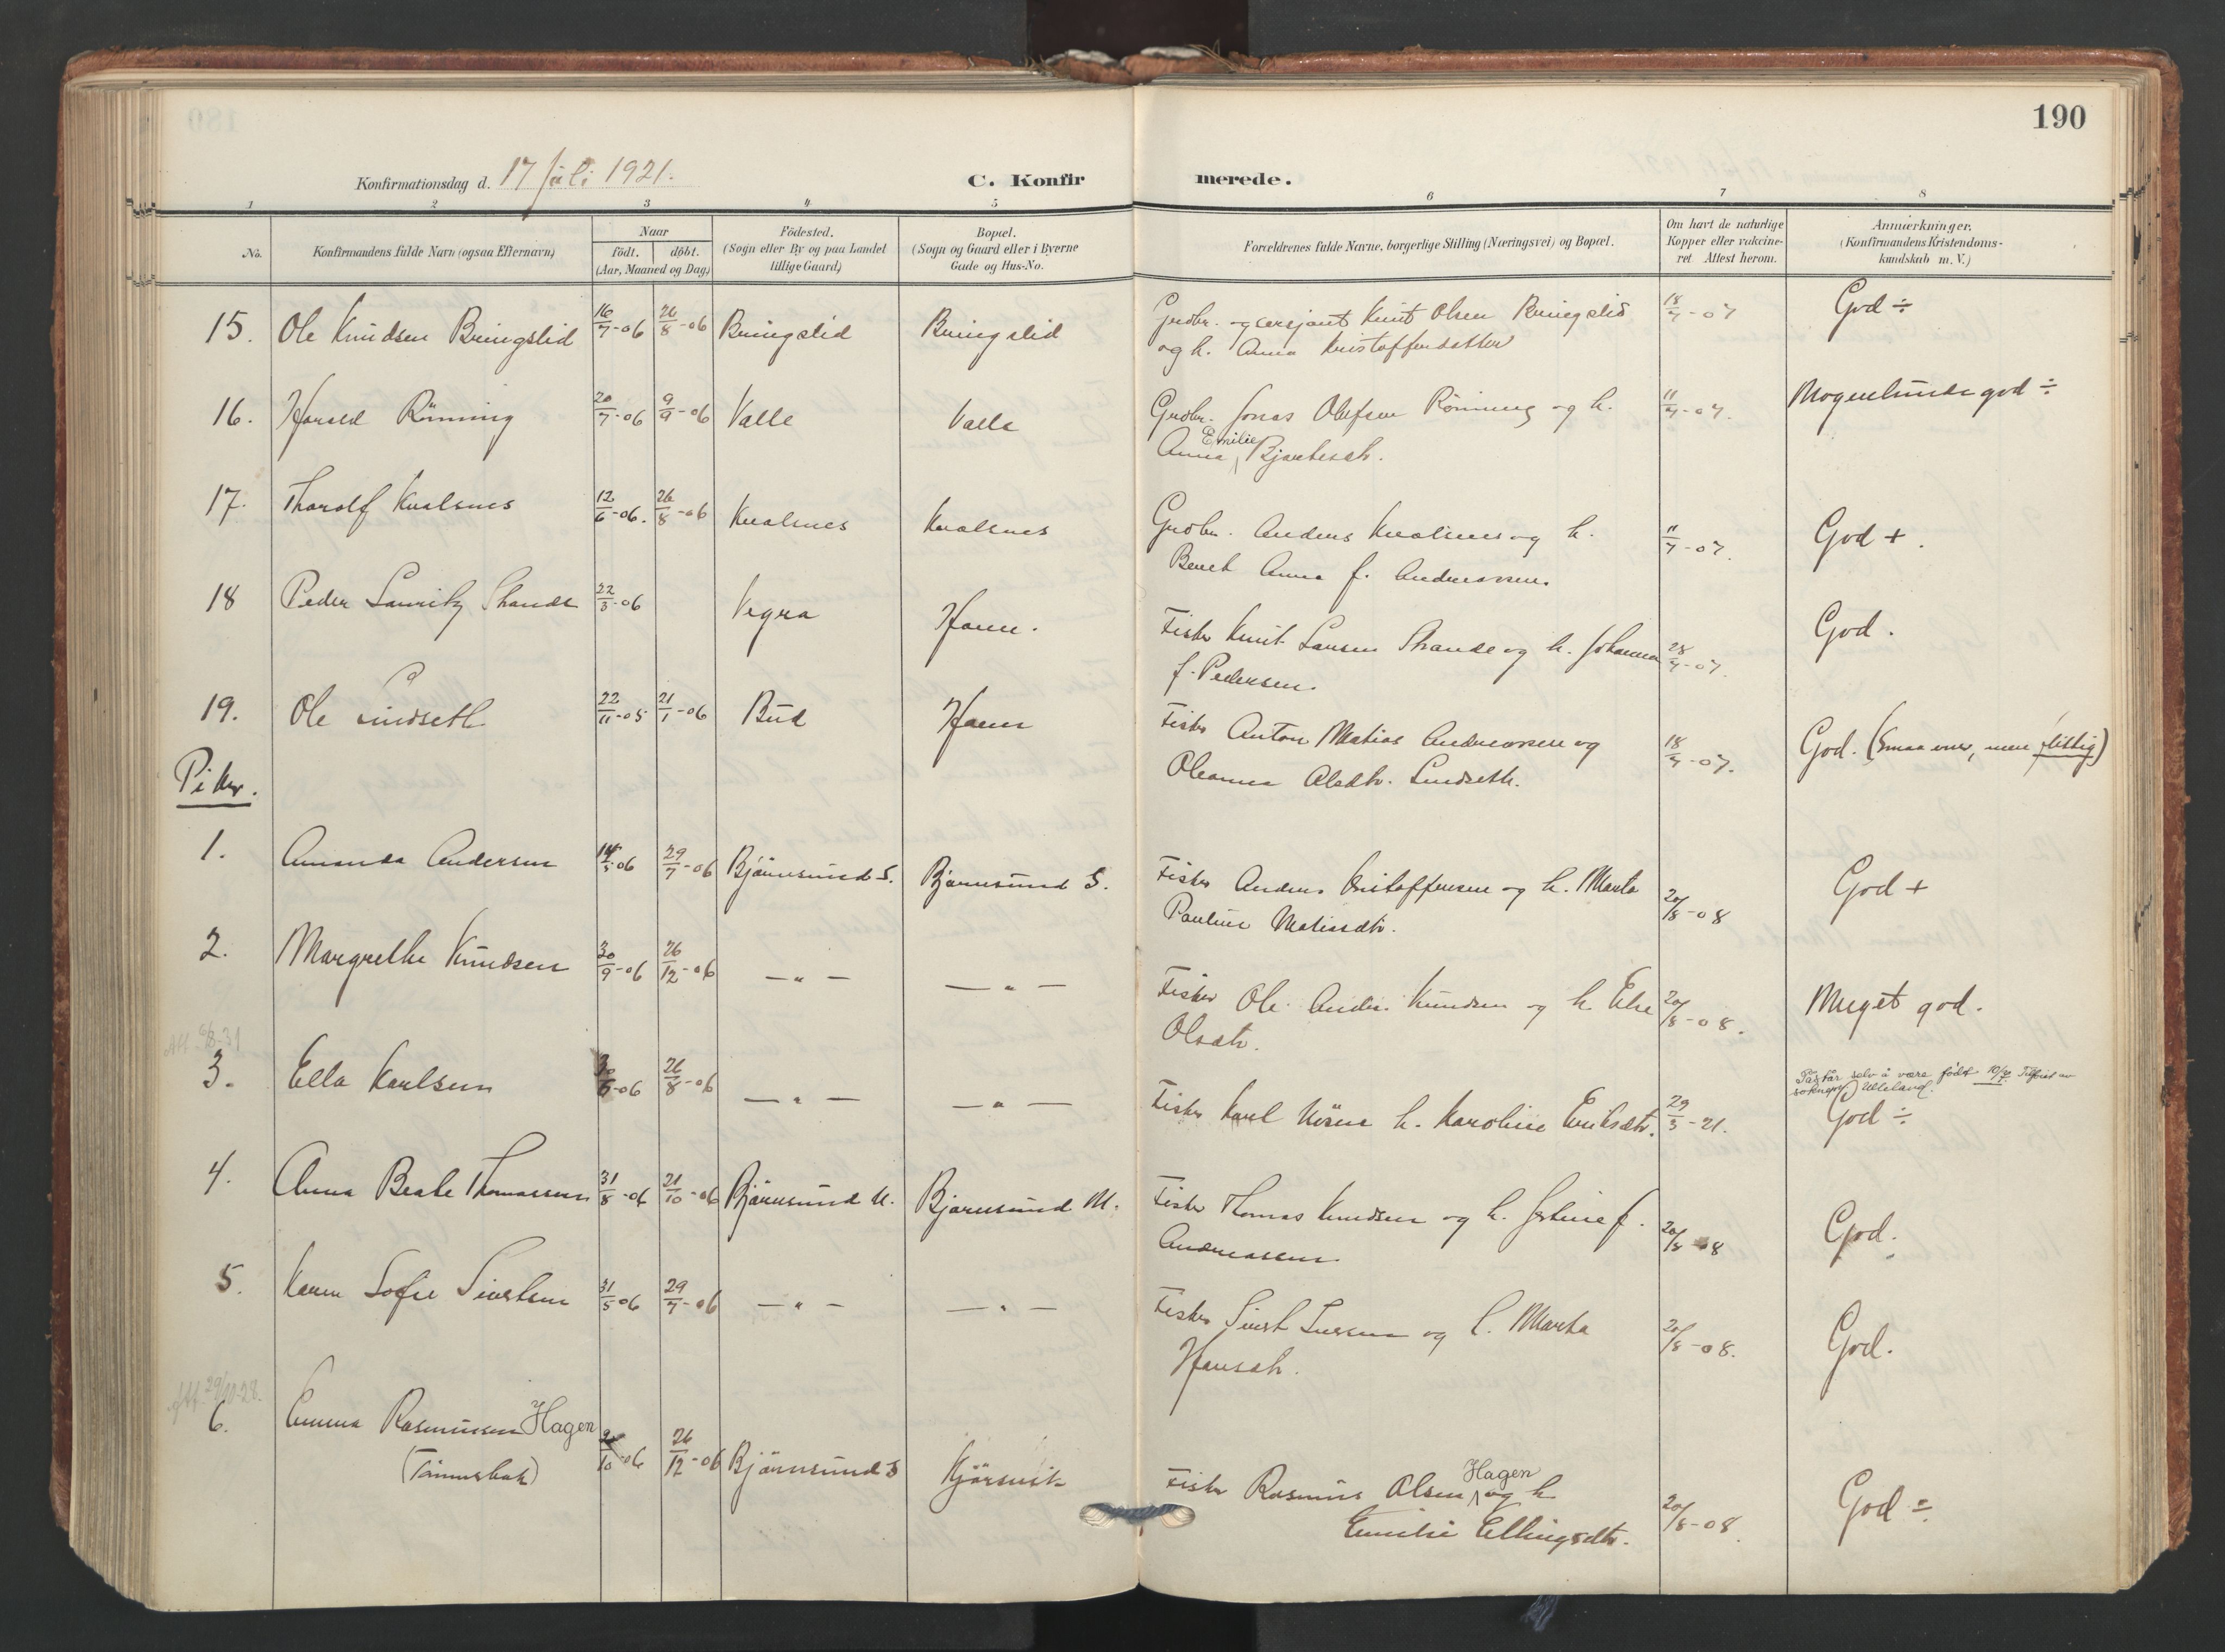 190
Konfirmationsdag d. 17 juli 1921.
C. Konfirmerede.
1 2 3 4 5 6 7 8
No.
Konfirmandens fulde Navn (ogsaa Efternavn)
Naar
födt. döbt.
(Aar, Maaned og Dag)
Födested.
(Sogn eller By og paa Landet
tillige Gaard)
Bopæl.
(Sogn og Gaard eller i Byerne
Gade og Hus-No.
Forældrenes fulde Navne, borgerlige Stilling (Næringsvei) og Bopæl.
Om havt de naturlige
Kopper eller vakcine-
ret Attest herom.
Anmærkninger.
(Konfirmandens Kristendoms-
kundskab m. V.)
15. Ole Knudsen Bringslid 16/7-06 26/8-06 Bringslid Bringslid Grdbr. og sersjant Knut Olsen Bringslid 18/7-07 God ÷
og h. Anna Kristoffersdatter
16. Harald Rönning 20/7-06 9/9-06 Valle Valle Grdbr. Jonas Olefsen Rönning og h. 11/7-07. Mogenlunde god ÷
Anna Emilie Bjartesdt.
17. Tharolf Kvalsnes 12/6-06. 26/8-06 Kvalsnes Kvalsnes Grdbr. Anders Kvalsnes og h. 11/7-07. God +.
Beret Anna f. Andreassen.
18 Peder Lauritz Strande 22/3-06 Vegra Havn. Fisker Knut Larsen Strande og h. Johanna 28/7-07. God.
f. Pedersen.
19. Ole Lindseth 22/11-05 21/1-06 Bud Havn Fisker Anton Matias Andreassen og 18/7-07. God. (Smaa evner, men flittig)
Oleanna Olsdtr. Lindseth.
Piker.
1. Amanda Andersen 14/5-06 29/7-06 Björnsund S. Bjørnsund S. Fisker Anders Kristoffersen og h. Marta 20/8-08 God +
Pauline Matiasdtr.
2. Margrethe Knudsen 30/9-06 26/12-06 — " — — " — Fisker Ole Anders Knudsen og h. Else 20/8-08. Meget god.
Olsdtr.
Att 6/8-31
3. Ella Karlsen 30/6-06 26/8-06 — " — — " — Fisker Karl Nösen h. Karoline Eriksdtr. 29/3-21. Påstår selv å være født 10/7. Tilført av
sokneprest Ulleland.
God ÷
4. Anna Beate Thomassen 31/8-06 21/10-06 Björnsund M. Bjørnsund M. Fisker Thomas Knudsen og h. Jertine f. 20/8-08 God.
Andreassen
5. Karen Sofie Sivertsen 31/5-06 29/7-06 — " — — " — Fisker Sivert Iversen og h. Marta 20/8-08. God.
Hansdt.
Att. 29/10-28.
6. Emma Rasmussen Hagen 2/10-06 26/12-06 Björnsund S Kjörsvik Fisker Rasmus Olsen Hagen og h. 20/8-08. God ÷
Emilie Ellingsdtr.